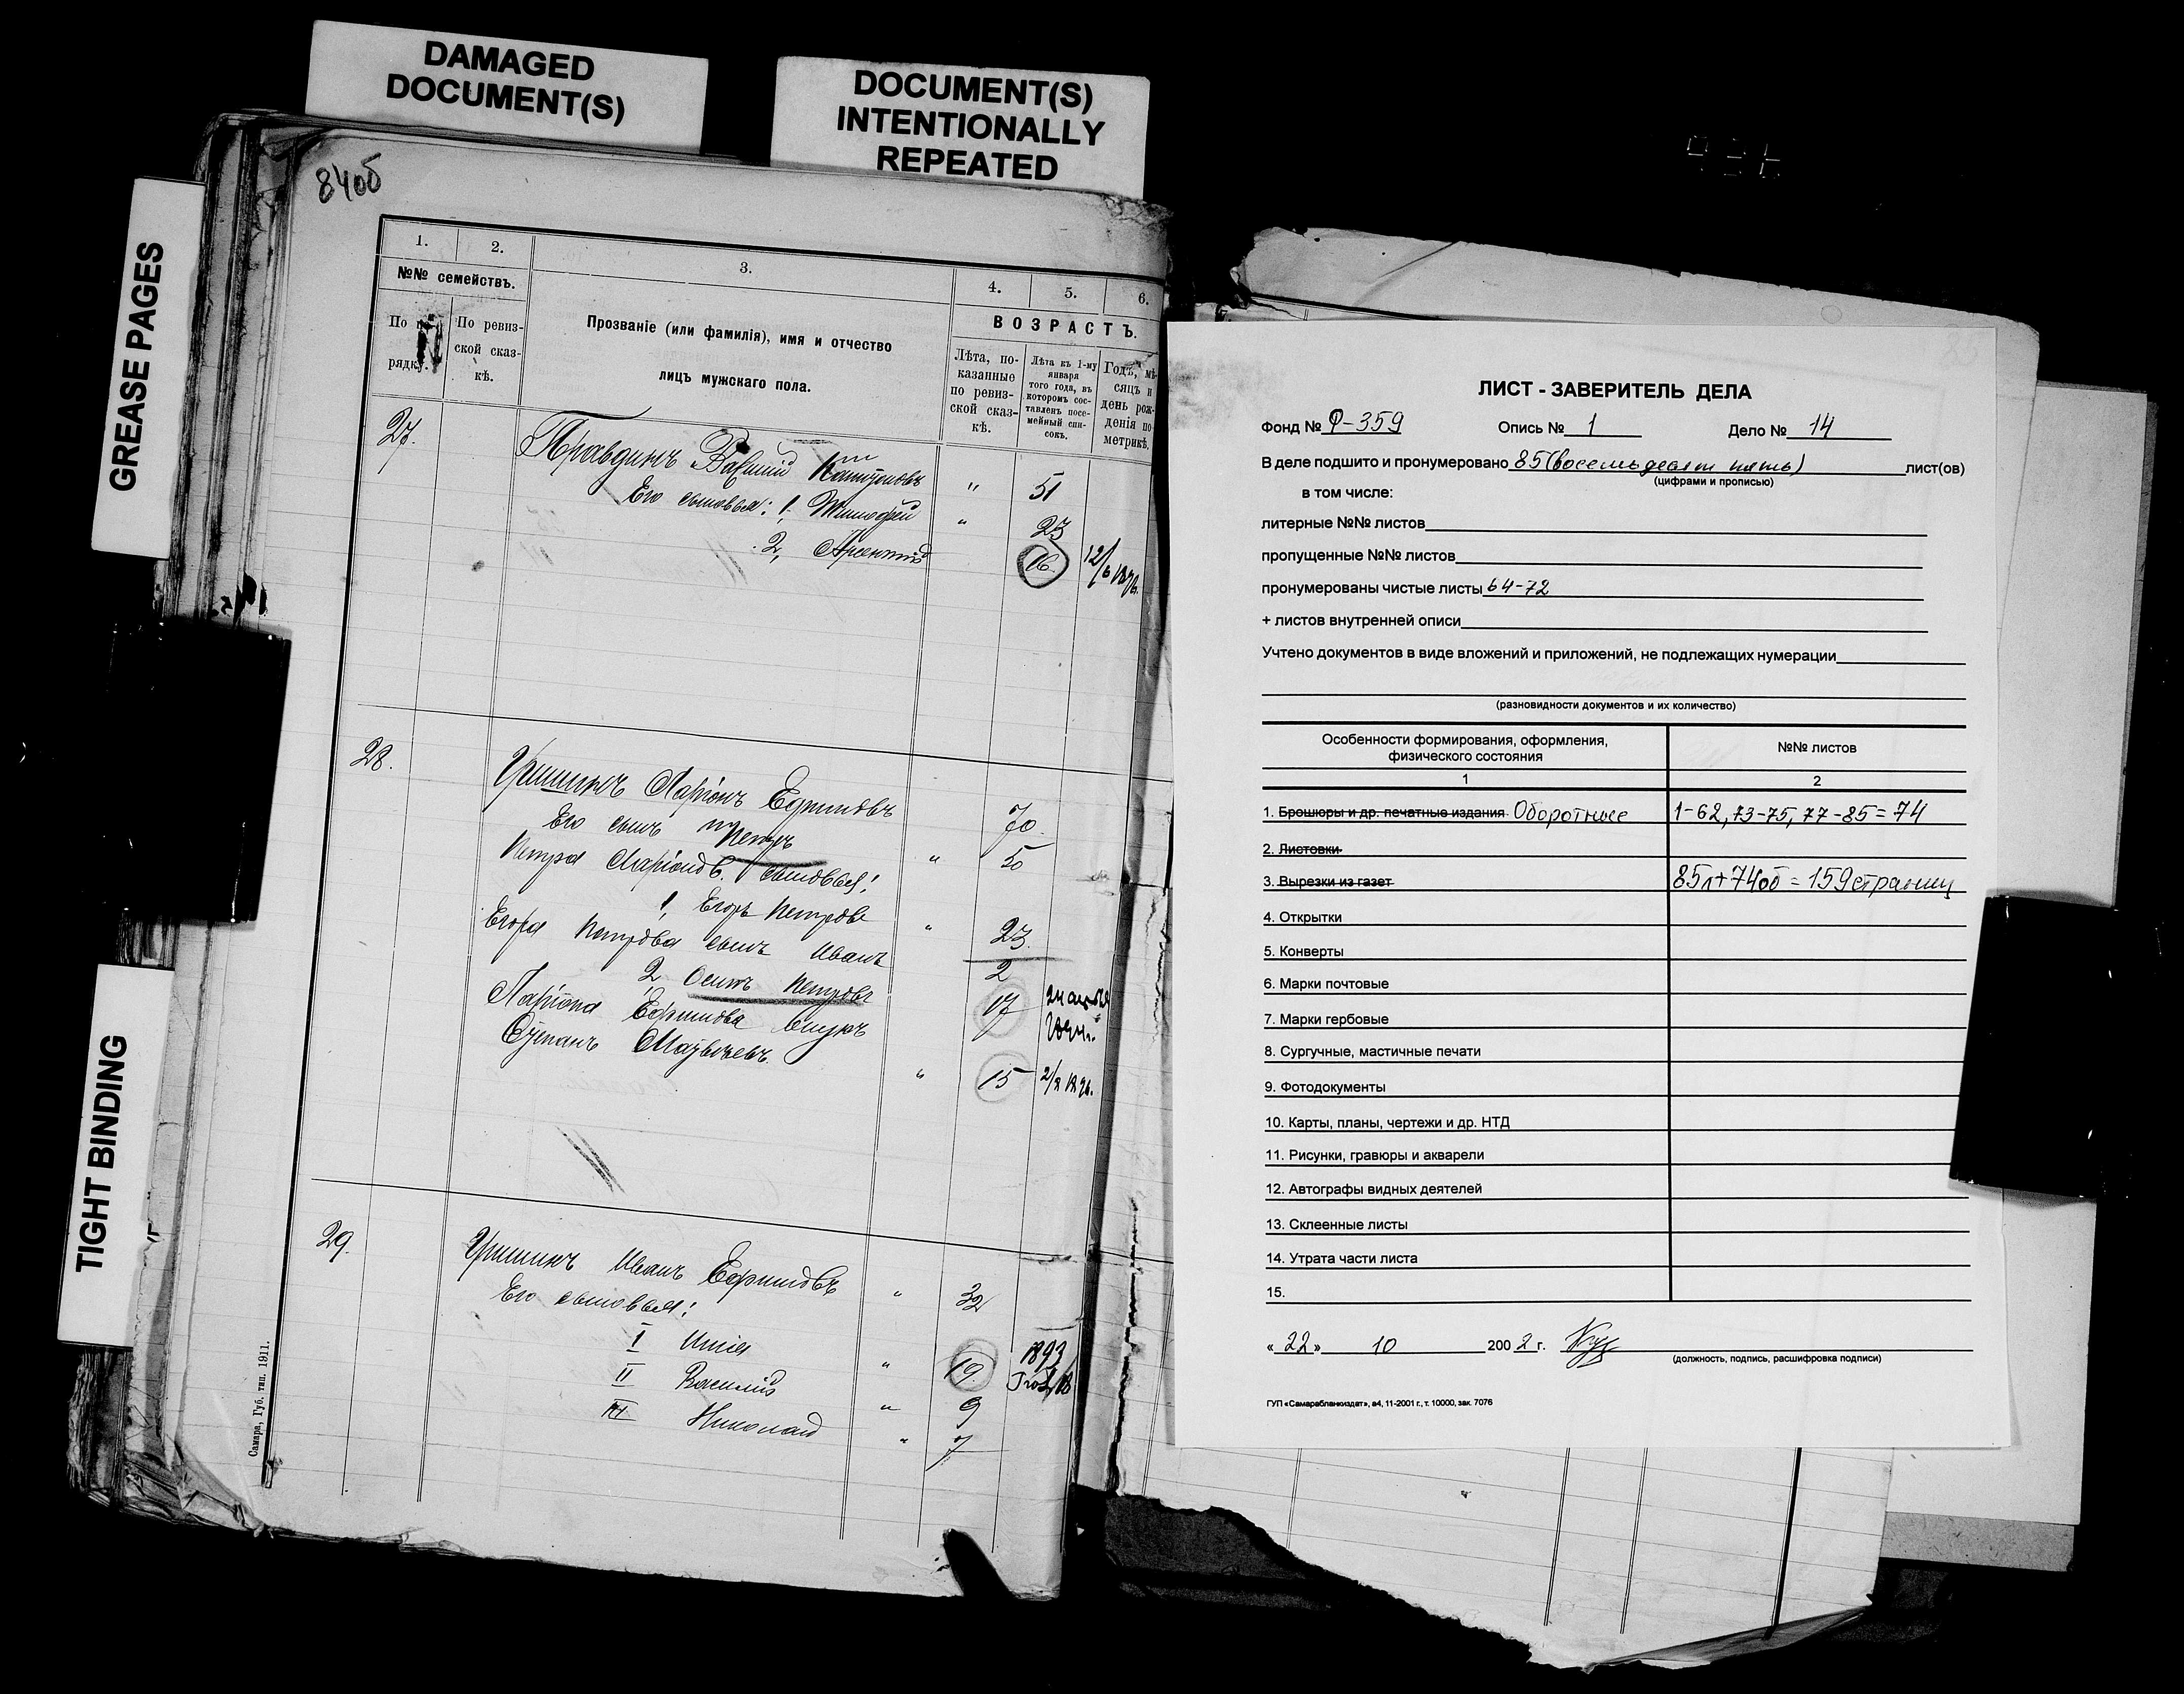 DAMAGED
DOCUMENT(S)
DOCUMENT(S)
INTENTIONALLY
REPEATED
GREASE PAGES
TIGHT BINDING
84об
1. 2. 3. 4. 5. 6.
№№ семействъ.
По рядку.
По ревиз-
ской сказ-
кѣ.
Прозваніе (или фамилія), имя и отчество
лицъ мужскаго пола.
ВОЗРАСТЪ.
Лѣта, по-
казанные
по ревиз-
ской сказ-
кѣ.
Лѣта къ 1-му
января
того года, въ
которомъ сос-
тавленъ посе-
мейный спи-
сокъ.
Годъ, мѣ-
сяцъ и
день рож-
денія по
метрикѣ.
27. Правдинъ " 51
Его сыновья: 1, Тимофей " 23
2, Арсентій 16
28. Ларіонъ Ефимовъ 70.
Его сынъ Петръ " 50
Петра Ларіонов. сыновья:
1, Егоръ Петровъ " 23.
Егора Петрова сынъ Иванъ 2
2, Осипъ Петровъ 17
Ларіона Ефимова внукъ
Степанъ Матвѣевъ. " 15
29. Иванъ Ефимовъ " 32
Его сыновья:
I " 19. 1893
II Василій " 9
III Николай " 7
Самара, Губ. тип. 1911.
ЛИСТ - ЗАВЕРИТЕЛЬ ДЕЛА
Фонд № Ф-359 Опись № 1 Дело № 14
В деле подшито и пронумеровано 85 (восемьдесят пять) лист(ов)
(цифрами и прописью)
в том числе:
литерные №№ листов
пропущенные №№ листов
пронумерованы чистые листы 64-72
+ листов внутренней описи
Учтено документов в виде вложений и приложений, не подлежащих нумерации
(разновидности документов и их количество)
Особенности формирования, оформления,
физического состояния
№№ листов
1 2
1. Брошюры и др. печатные издания Оборотные 1-62, 73-75, 77-85 = 74
2. Листовки
3. Вырезки из газет 85л+74об = 159 страниц
4. Открытки
5. Конверты
6. Марки почтовые
7. Марки гербовые
8. Сургучные, мастичные печати
9. Фотодокументы
10. Карты, планы, чертежи и др. НТД
11. Рисунки, гравюры и акварели
12. Автографы видных деятелей
13. Склеенные листы
14. Утрата части листа
15.
« 22 » 10 200 2 г.
(должность, подпись, расшифровка подписи)
ГУП «Самарабланкиздат», а4, 11-2001 г., т. 10000, зак. 7076